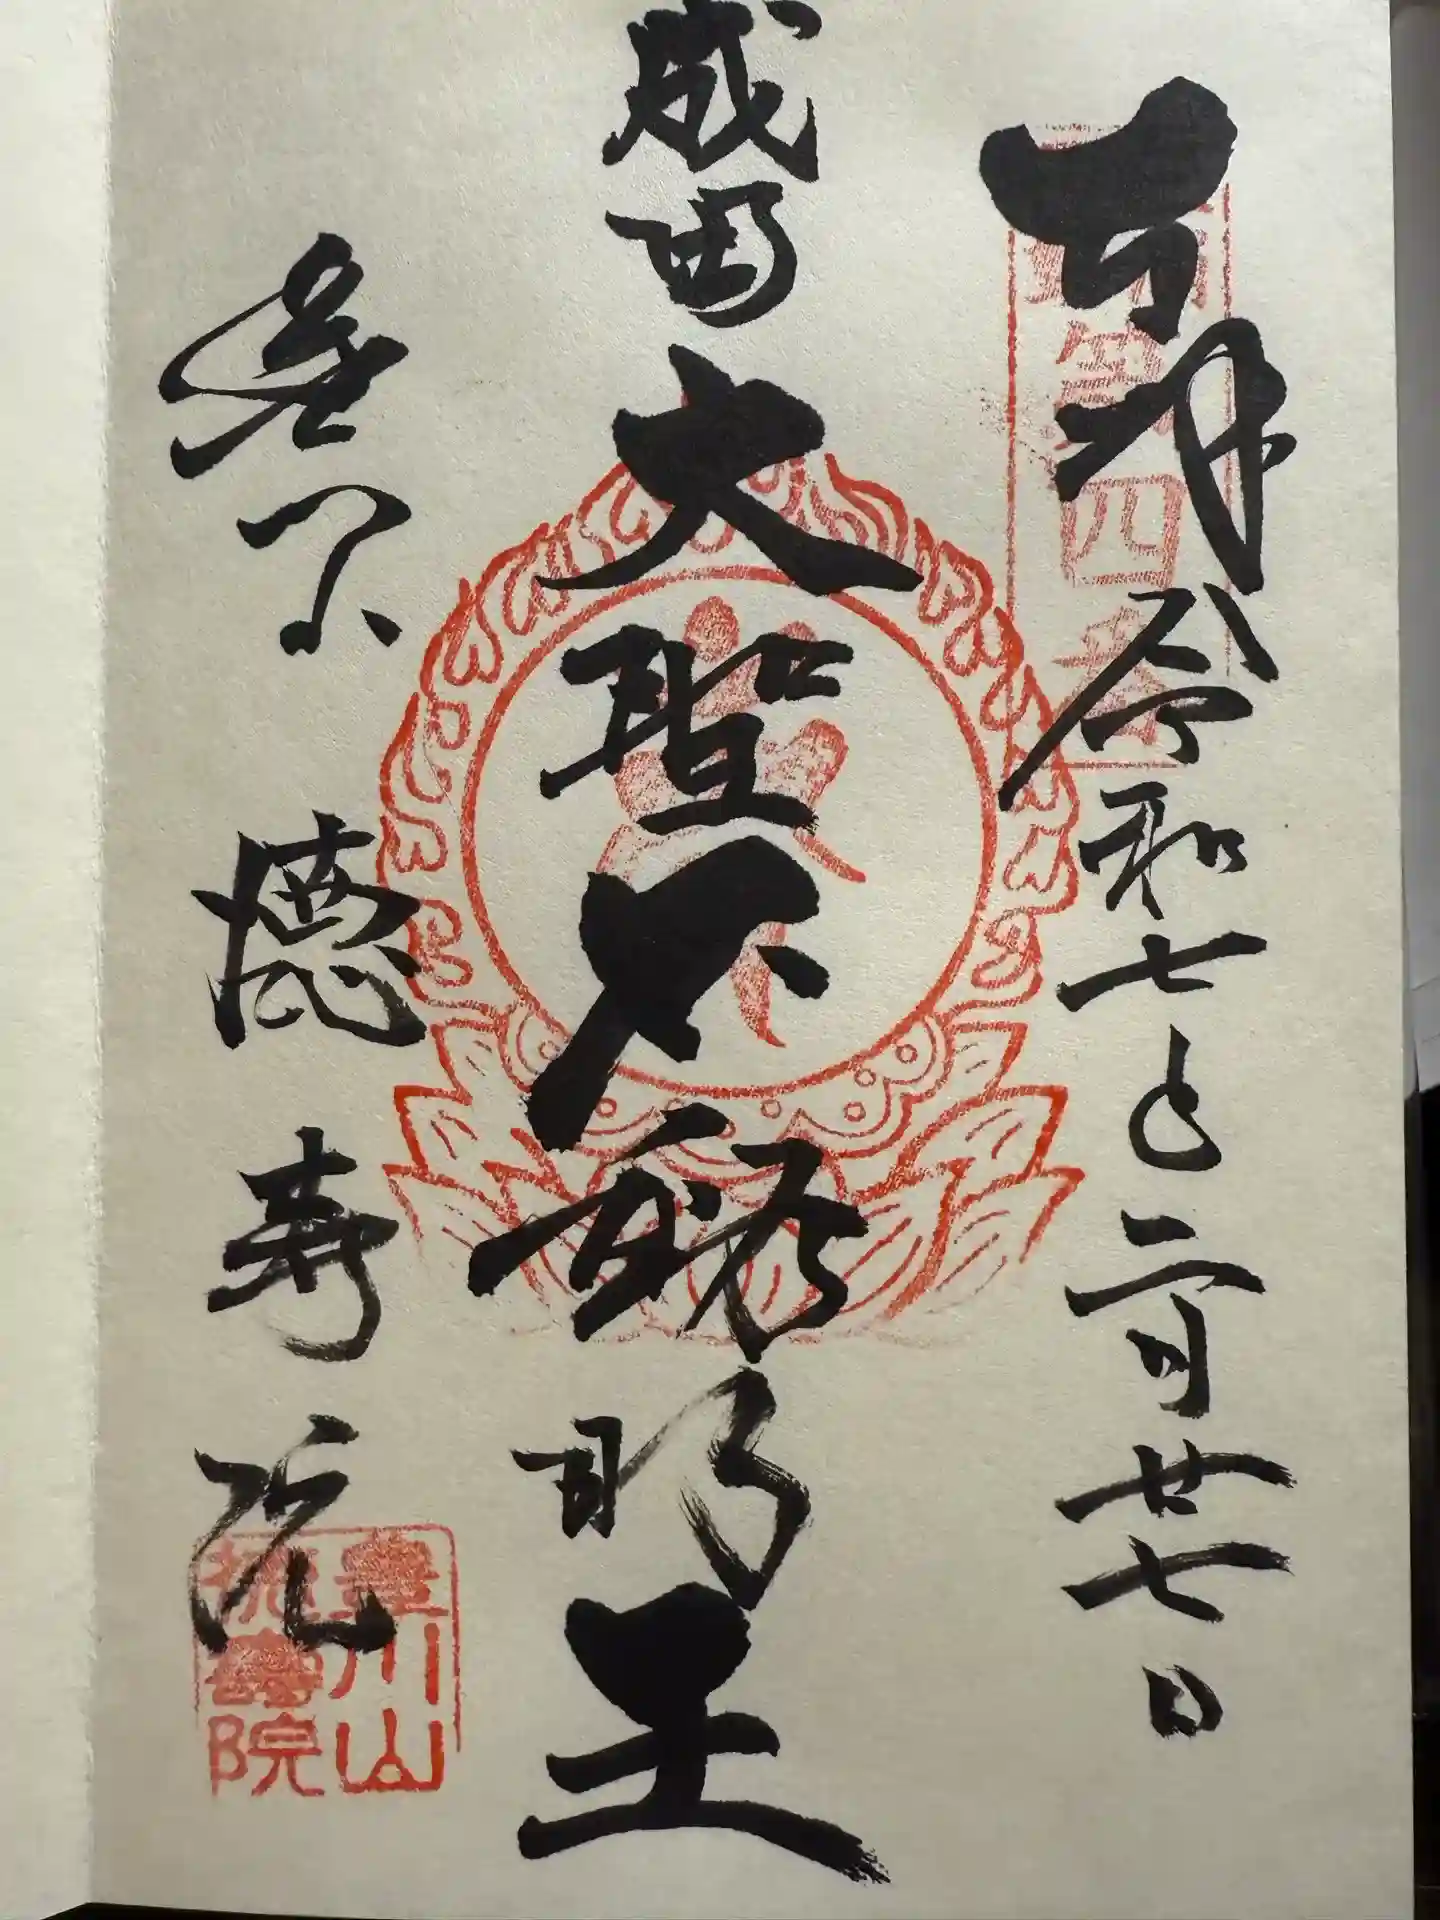 奉拝 令和七年二月廿七日
第四番
成田大聖不動明王
徳寿院
豊川山
徳壽院